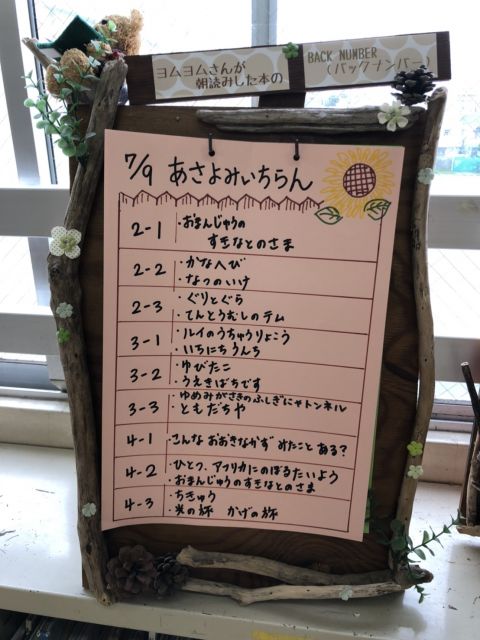 ヨムヨムさんが
朝読みした本の
BACK NUMBER
(バックナンバー)
7/9 あさよみいちらん
2-1 ・おまんじゅうの
すきなとのさま
2-2 ・かなへび
・なつのいけ
2-3 ・ぐりとぐら
・てんとうむしのテム
3-1 ・ルイのうちゅうりょこう
・いちにちうんち
3-2 ・ゆびたこ
・うえきばちです
3-3 ・ゆめみがさきのふしぎなトンネル
・ともだちや
4-1 ・こんな おおきなかず みたこと ある?
4-2 ・ひとつ、アフリカにのぼるたいよう
・おまんじゅうのすきなとのさま
4-3 ・ちきゅう
・光の旅 かげの旅